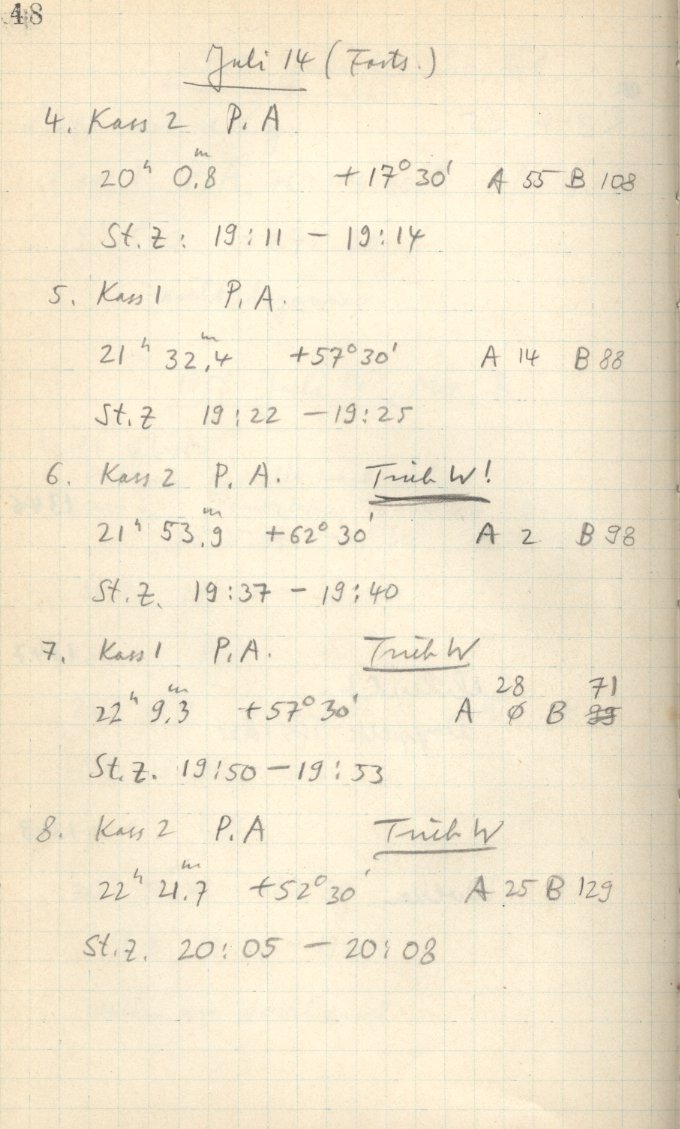 48
Juli 14 (Forts.)
4. Kass 2 P. A
20ʰ 0,8ᵐ +17°30' A 55 B 108
St. Z: 19:11 – 19:14
5. Kass 1 P. A.
21ʰ 32,4ᵐ +57°30' A 14 B 88
St. Z 19:22 – 19:25
6. Kass 2 P. A. Trüb W!
21ʰ 53,9ᵐ +62°30' A 2 B 98
St. Z. 19:37 – 19:40
7. Kass 1 P. A. Trüb W
28 71
22ʰ 9,3ᵐ +57°30' A B
St. Z. 19:50 – 19:53
8. Kass 2 P. A Trüb W
22ʰ 21,7ᵐ +52°30' A 25 B 129
St. Z. 20:05 – 20:08